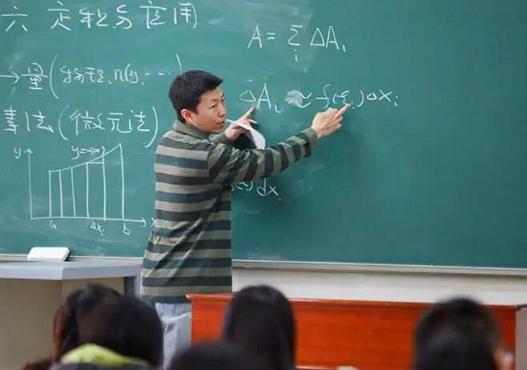 六 定积分应用
A = Σ ΔA_i
i
→量(物理,几何,…)
ΔA_i ≈ f(ξ_i)Δx_i
法(微元法)
y
dx
a Δx_i b x